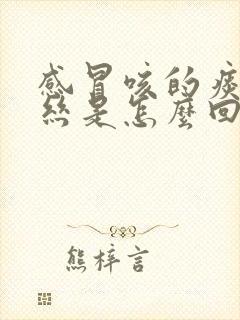 感冒咳的痰
丝是怎麼回
熊梓言